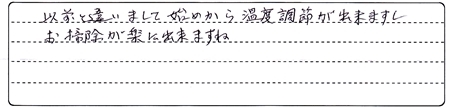 以前と違いまして始めから温度調節が出来ますし
お掃除が楽に出来ますね